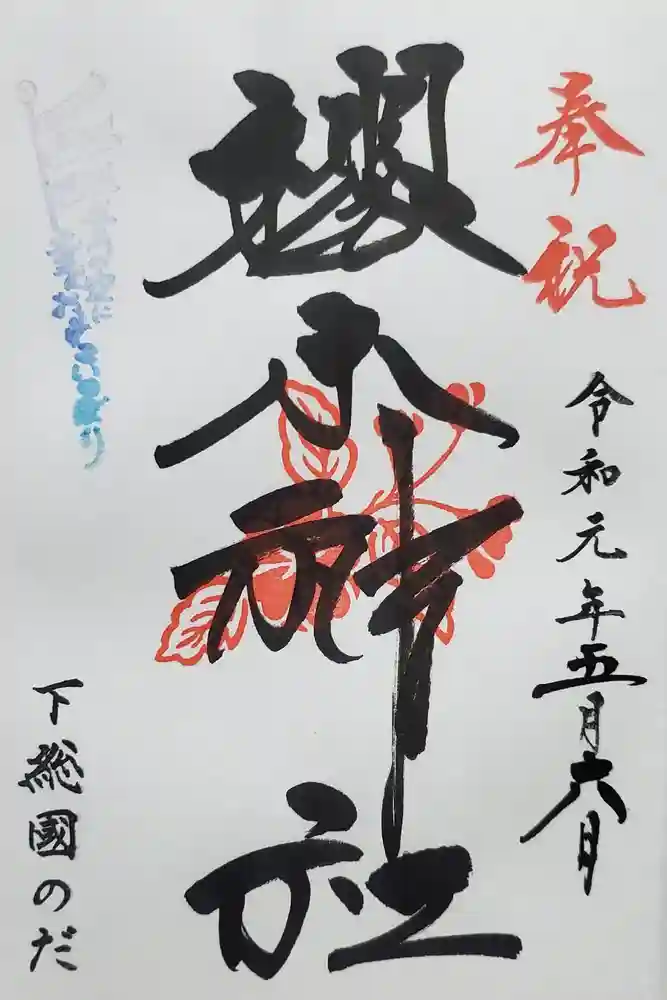 奉祝
令和元年五月六日
櫻木神社
下総國のだ